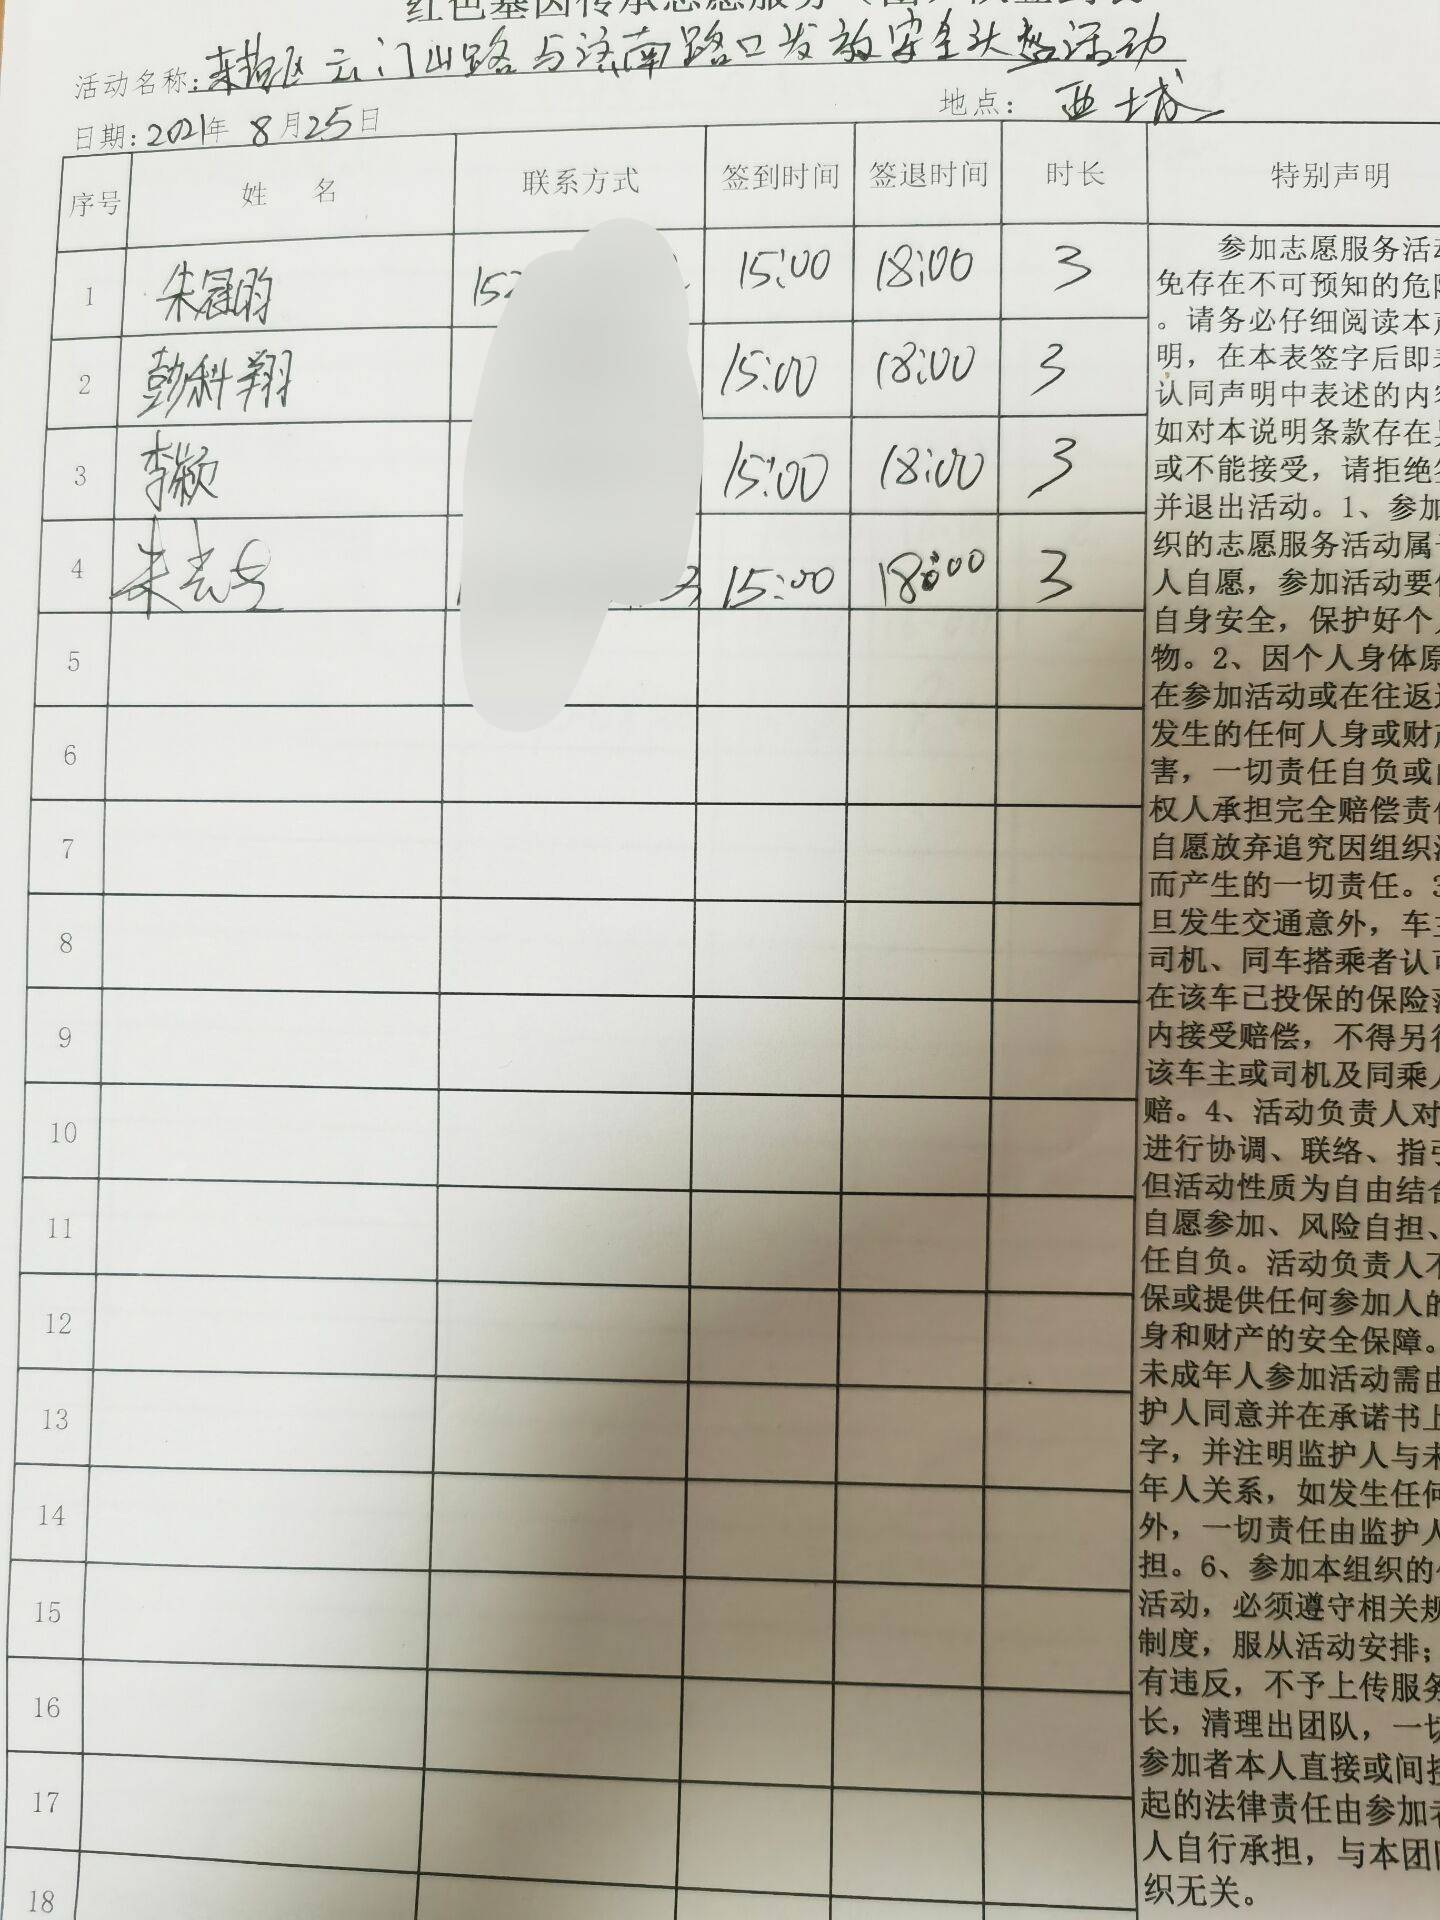 红色基因传承志愿服务
活动名称: 区云门山路与济南路口发放安全头盔活动
日期: 2021年 8月25日 地点:
序号 姓 名 联系方式 签到时间 签退时间 时长 特别声明
1 朱 15 15:00 18:00 3
2 彭科翔 15:00 18:00 3
3 李颖 15:00 18:00 3
4 朱 15:00 18:00 3
5
6
7
8
9
10
11
12
13
14
15
16
17
18
参加志愿服务活动
免存在不可预知的危险
。请务必仔细阅读本声
明，在本表签字后即表
认同声明中表述的内容
如对本说明条款存在异
或不能接受，请拒绝签
并退出活动。1、参加
织的志愿服务活动属于
人自愿，参加活动要
自身安全，保护好个人
物。2、因个人身体原
在参加活动或在往返
发生的任何人身或财产
害，一切责任自负或由
权人承担完全赔偿责任
自愿放弃追究因组织活
而产生的一切责任。3
旦发生交通意外，车主
司机、同车搭乘者认可
在该车已投保的保险范
内接受赔偿，不得另行
该车主或司机及同乘人
赔。4、活动负责人对
进行协调、联络、指引
但活动性质为自由结合
自愿参加、风险自担、
任自负。活动负责人不
保或提供任何参加人的
身和财产的安全保障。
未成年人参加活动需由
护人同意并在承诺书上
字，并注明监护人与未
年人关系，如发生任何
外，一切责任由监护人
担。6、参加本组织的
活动，必须遵守相关规
制度，服从活动安排；
有违反，不予上传服务
长，清理出团队，一切
参加者本人直接或间接
起的法律责任由参加者
人自行承担，与本团队
织无关。